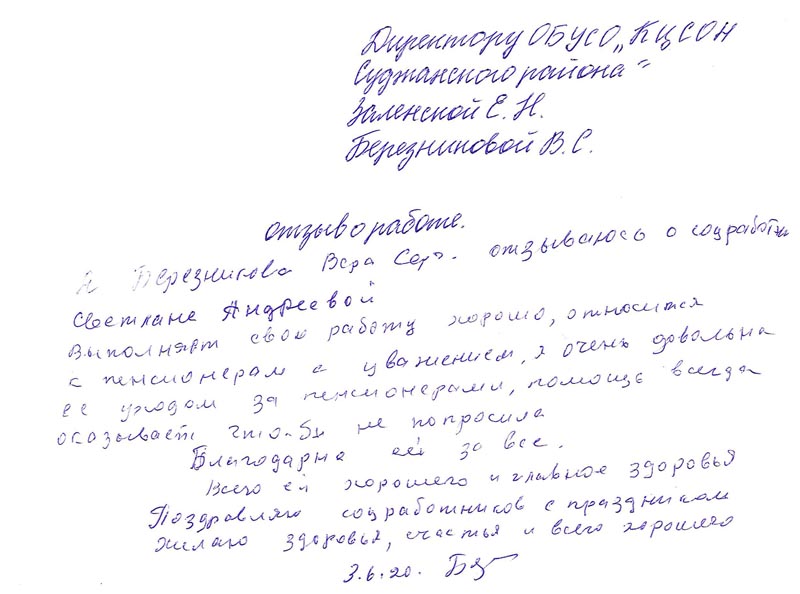 Директору ОБУСО „КЦСОН
Суджанского района"
Заленской Е. Н.
Березниковой В. С.
отзыв о работе.
Я Березникова Вера Серг. отзываюсь о соцработни
Светлане Андреевой
Выполняет свою работу хорошо, относится
к пенсионерам с уважением, я очень довольна
ее уходом за пенсионерами, помощь всегда
оказывает что-бы не попросила
Благодарна ей за все.
Всего ей хорошего и главное здоровья
Поздравляю соцработников с праздником
желаю здоровья, счастья и всего хорошего
3.6.20.